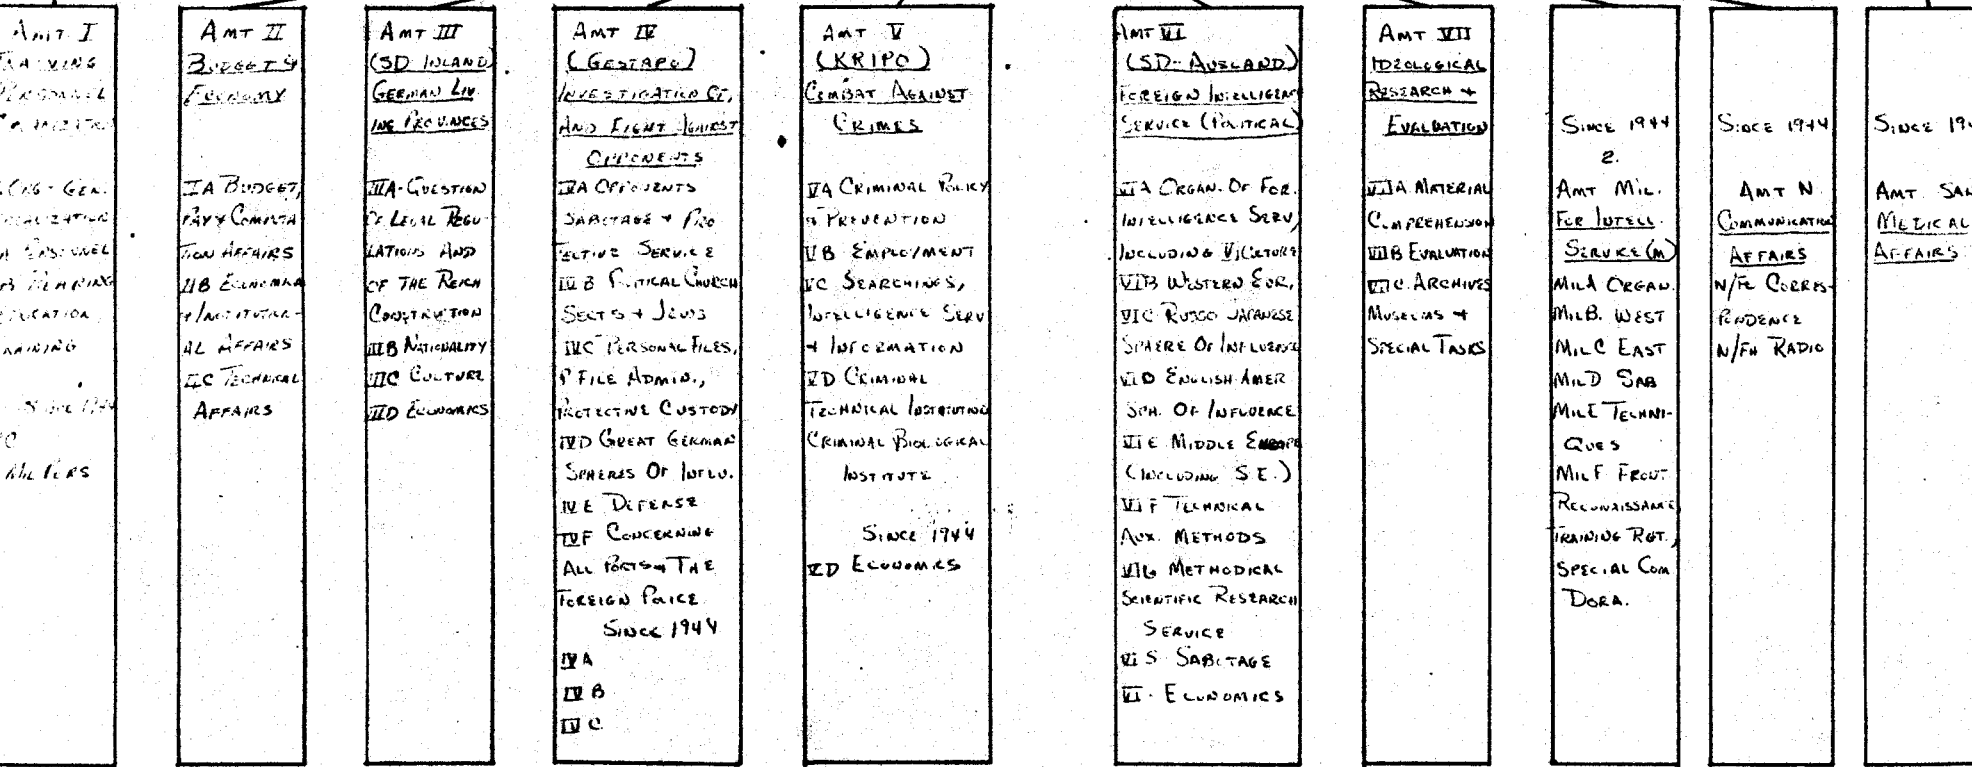 Amt I
Personnel
Org - Gen.
Since 1944
Mil Pers
Amt II
Budget &
Economy
IA Budget,
Pay & Computa
tion Affairs
IIB Economica
+ Institution-
al Affairs
IIC Technical
Affairs
Amt III
(SD-Inland)
German Liv
ing Provinces
IIIA-Question
of Legal Regu-
lations And
of the Reich
Construction
IIIB Nationality
IIIC Culture
IIID Economics
Amt IV
(Gestapo)
Investigation Of,
And Fight Against
Opponents
IVA Opponents
Sabotage + Pro
tective Service
IVB Political Church
Sects + Jews
IVC Personal Files,
P File Admin.,
Protective Custody
IVD Great German
Spheres Of Influ.
IVE Defense
IVF Concerning
All Ports + The
Foreign Police
Since 1944
IVA
IVB
IVC
Amt V
(KRIPO)
Combat Against
Crimes
VA Criminal Policy
+ Prevention
VB Employment
VC Searchings,
Intelligence Serv
+ Information
VD Criminal
Technical Institution
Criminal Biological
Institute
Since 1944
VD Economics
Amt VI
(SD-Ausland)
Foreign Intelligence
Service (Political)
VIA Organ. Of For.
Intelligence Serv,
Including
VIB Western Eur,
VIC Russo Japanese
Sphere Of Influence
VID English-Amer
Sph. Of Influence
VIE Middle Europe
(Including S.E.)
VIF Technical
Aux. Methods
VIG Methodical
Scientific Research
Service
VI S Sabotage
VI - Economics
Amt VII
Ideological
Research +
Evaluation
VIIA Material
Comprehension
VIIB Evaluation
VIIC Archives
Museums +
Special Tasks
Since 1944
2.
Amt Mil.
For Intell.
Service (M)
MilA Organ.
MilB. West
MilC East
MilD Sab
MilE Techni-
ques
MilF Front
Reconnaissance
Training Rgt.,
Special Com
Dora.
Since 1944
Amt N
Communication
Affairs
N/Fe Corres-
pondence
N/FH Radio
Since 194
Amt San
Medical
Affairs